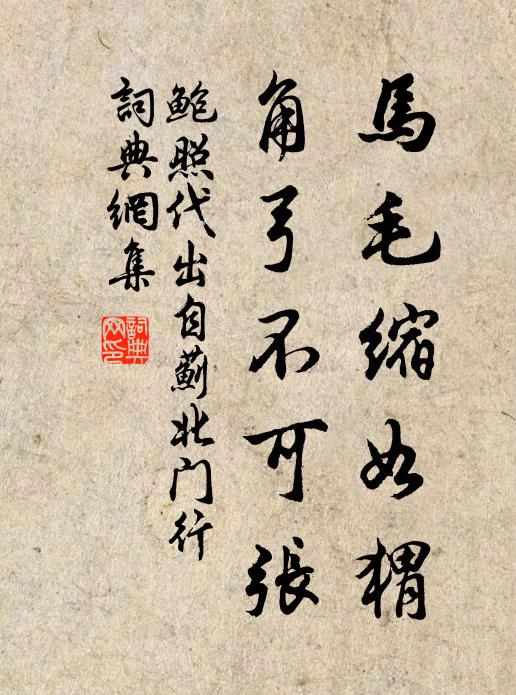 馬毛縮如猬
角弓不可張
鮑照代出自薊北门行
詞典網集
詞典網印